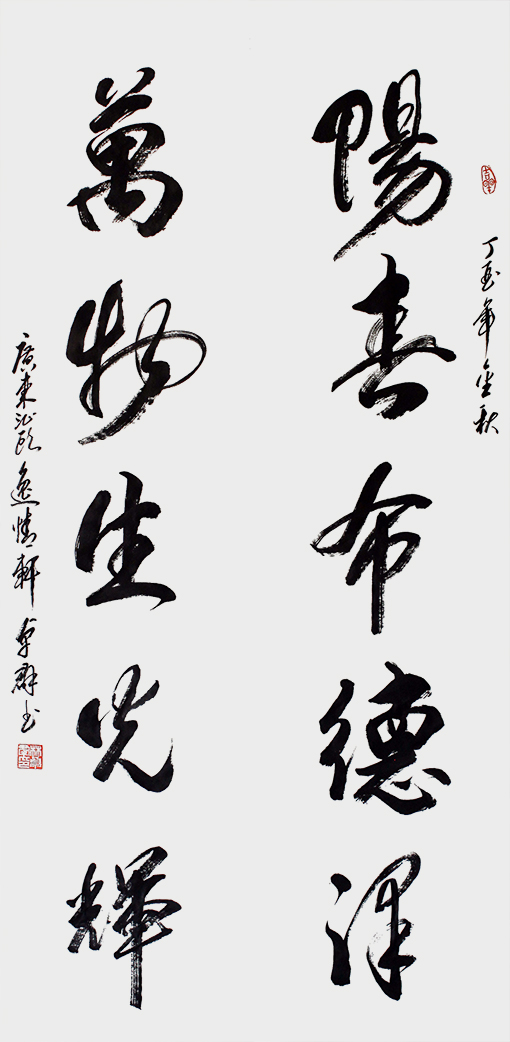 丁酉年金秋
陽春布德澤
萬物生光輝
廣東汕頭逸情軒卓群书